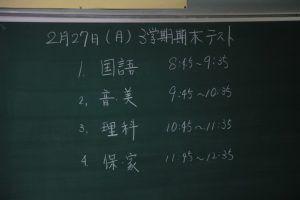 2月27日(月) 3学期期末テスト
1. 国語 8:45~9:35
2. 音・美 9:45~10:35
3. 理科 10:45~11:35
4. 保・家 11:45~12:35